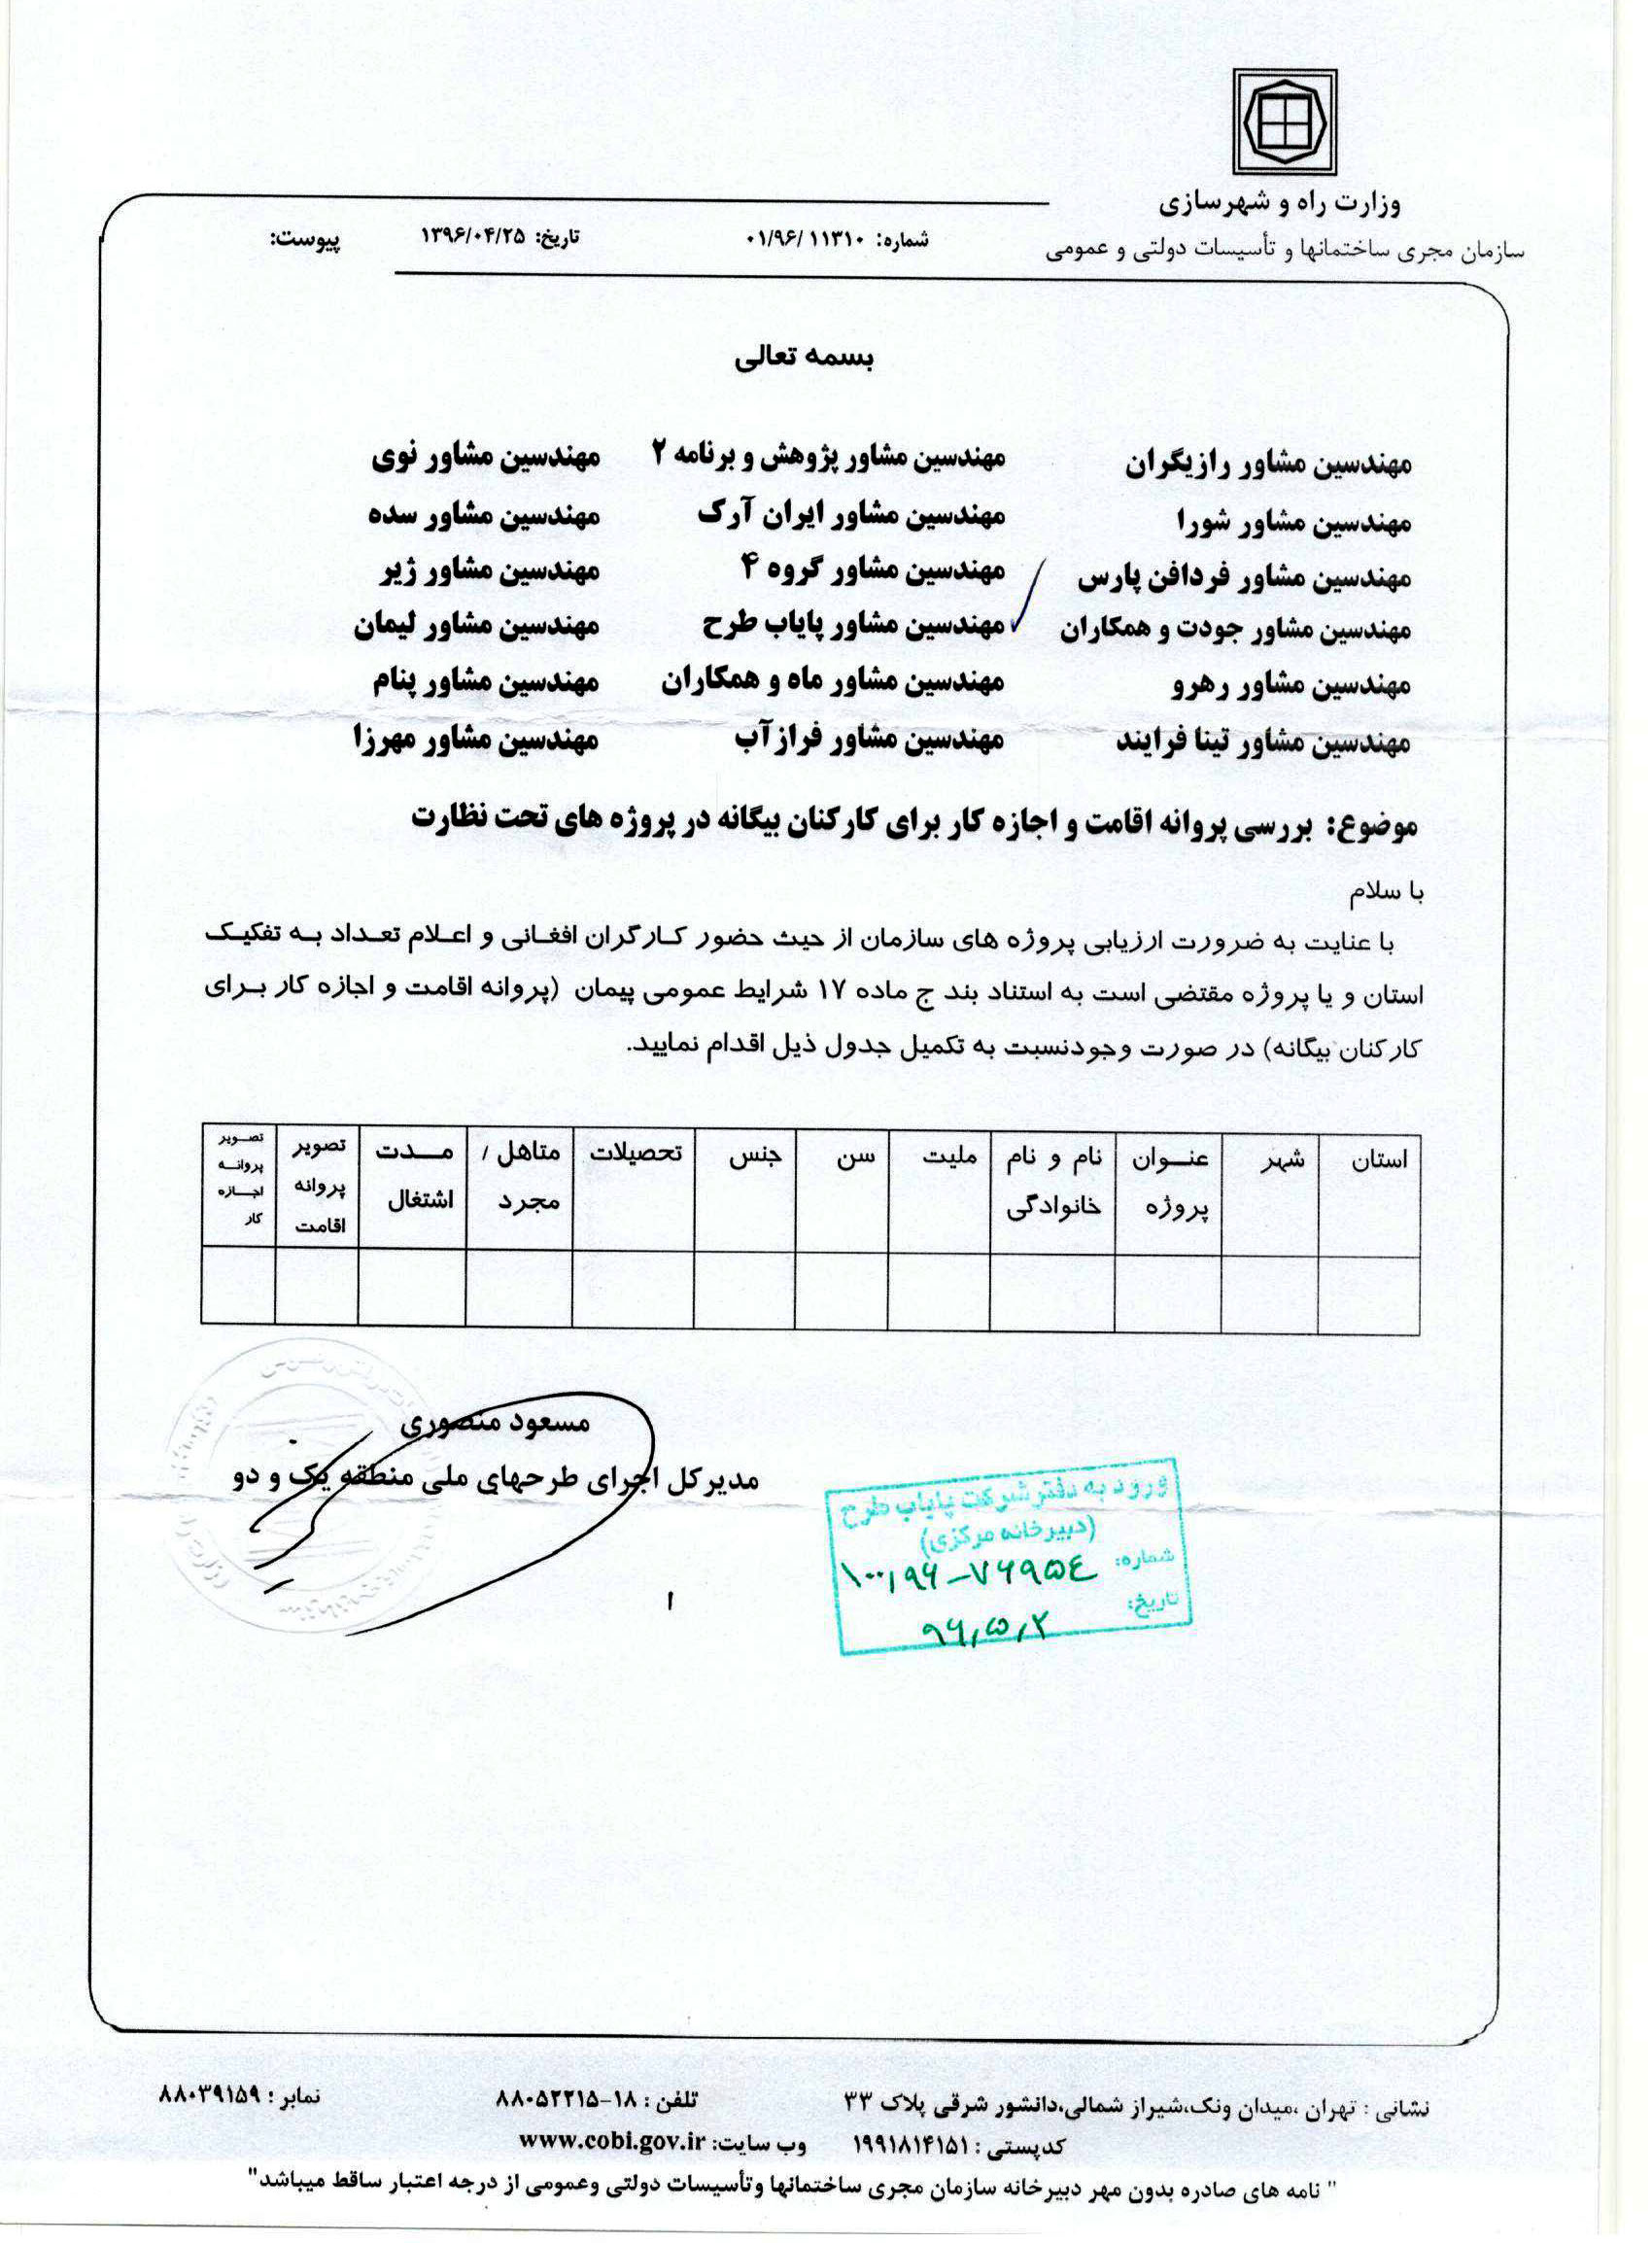 وزارت راه و شهرسازی
سازمان مجری ساختمانها و تأسیسات دولتی و عمومی
شماره: ۰۱/۹۶/۱۱۳۱۰ تاریخ: ۱۳۹۶/۰۴/۲۵ پیوست:
بسمه تعالی
مهندسین مشاور رازیگران مهندسین مشاور پژوهش و برنامه ۲ مهندسین مشاور نوی
مهندسین مشاور شورا مهندسین مشاور ایران آرک مهندسین مشاور سده
مهندسین مشاور فردافن پارس مهندسین مشاور گروه ۴ مهندسین مشاور ژیر
مهندسین مشاور جودت و همکاران مهندسین مشاور پایاب طرح مهندسین مشاور لیمان
مهندسین مشاور رهرو مهندسین مشاور ماه و همکاران مهندسین مشاور پنام
مهندسین مشاور تینا فرایند مهندسین مشاور فرازآب مهندسین مشاور مهرزا
موضوع: بررسی پروانه اقامت و اجازه کار برای کارکنان بیگانه در پروژه های تحت نظارت
با سلام
با عنایت به ضرورت ارزیابی پروژه های سازمان از حیث حضور کارگران افغانی و اعلام تعداد به تفکیک
استان و یا پروژه مقتضی است به استناد بند ج ماده ۱۷ شرایط عمومی پیمان (پروانه اقامت و اجازه کار برای
کارکنان بیگانه) در صورت وجودنسبت به تکمیل جدول ذیل اقدام نمایید.
استان
شهر
عنوان
پروژه
نام و نام
خانوادگی
ملیت
سن
جنس
تحصیلات
متاهل /
مجرد
مدت
اشتغال
تصویر
پروانه
اقامت
تصویر
پروانه
اجازه
کار
مسعود منصوری
مدیرکل اجرای طرحهای ملی منطقه یک و دو
ورود به دفتر شرکت پایاب طرح
(دبیرخانه مرکزی)
شماره: ۱۰۰,۹۶-۷۶۹۵۴
تاریخ: ۹۶,۵,۲
نشانی : تهران ،میدان ونک،شیراز شمالی،دانشور شرقی پلاک ۳۳ تلفن : ۱۸-۸۸۰۵۲۲۱۵ نمابر : ۸۸۰۳۹۱۵۹
کدپستی : ۱۹۹۱۸۱۴۱۵۱ وب سایت: www.cobi.gov.ir
" نامه های صادره بدون مهر دبیرخانه سازمان مجری ساختمانها وتأسیسات دولتی وعمومی از درجه اعتبار ساقط میباشد"